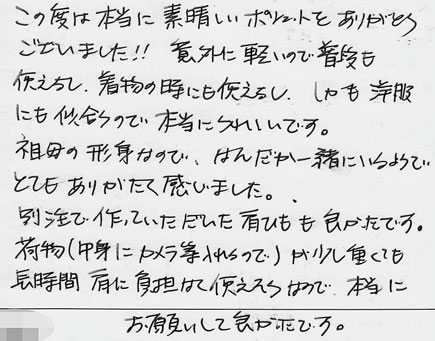 この度は本当に素晴しいポシェットをありがとう
ございました!! 意外に軽いので普段も
使えるし、着物の時にも使えるし、しかも洋服
にも似合うので本当にうれしいです。
祖母の形身なので、なんだか一緒にいるようで
とてもありがたく感じました。
別注で作っていただいた肩ひもも良かったです。
荷物(中身にカメラ等入れるので)が少し重くても
長時間 肩に負担なく使えそうなので 本当に
お願いして良かったです。